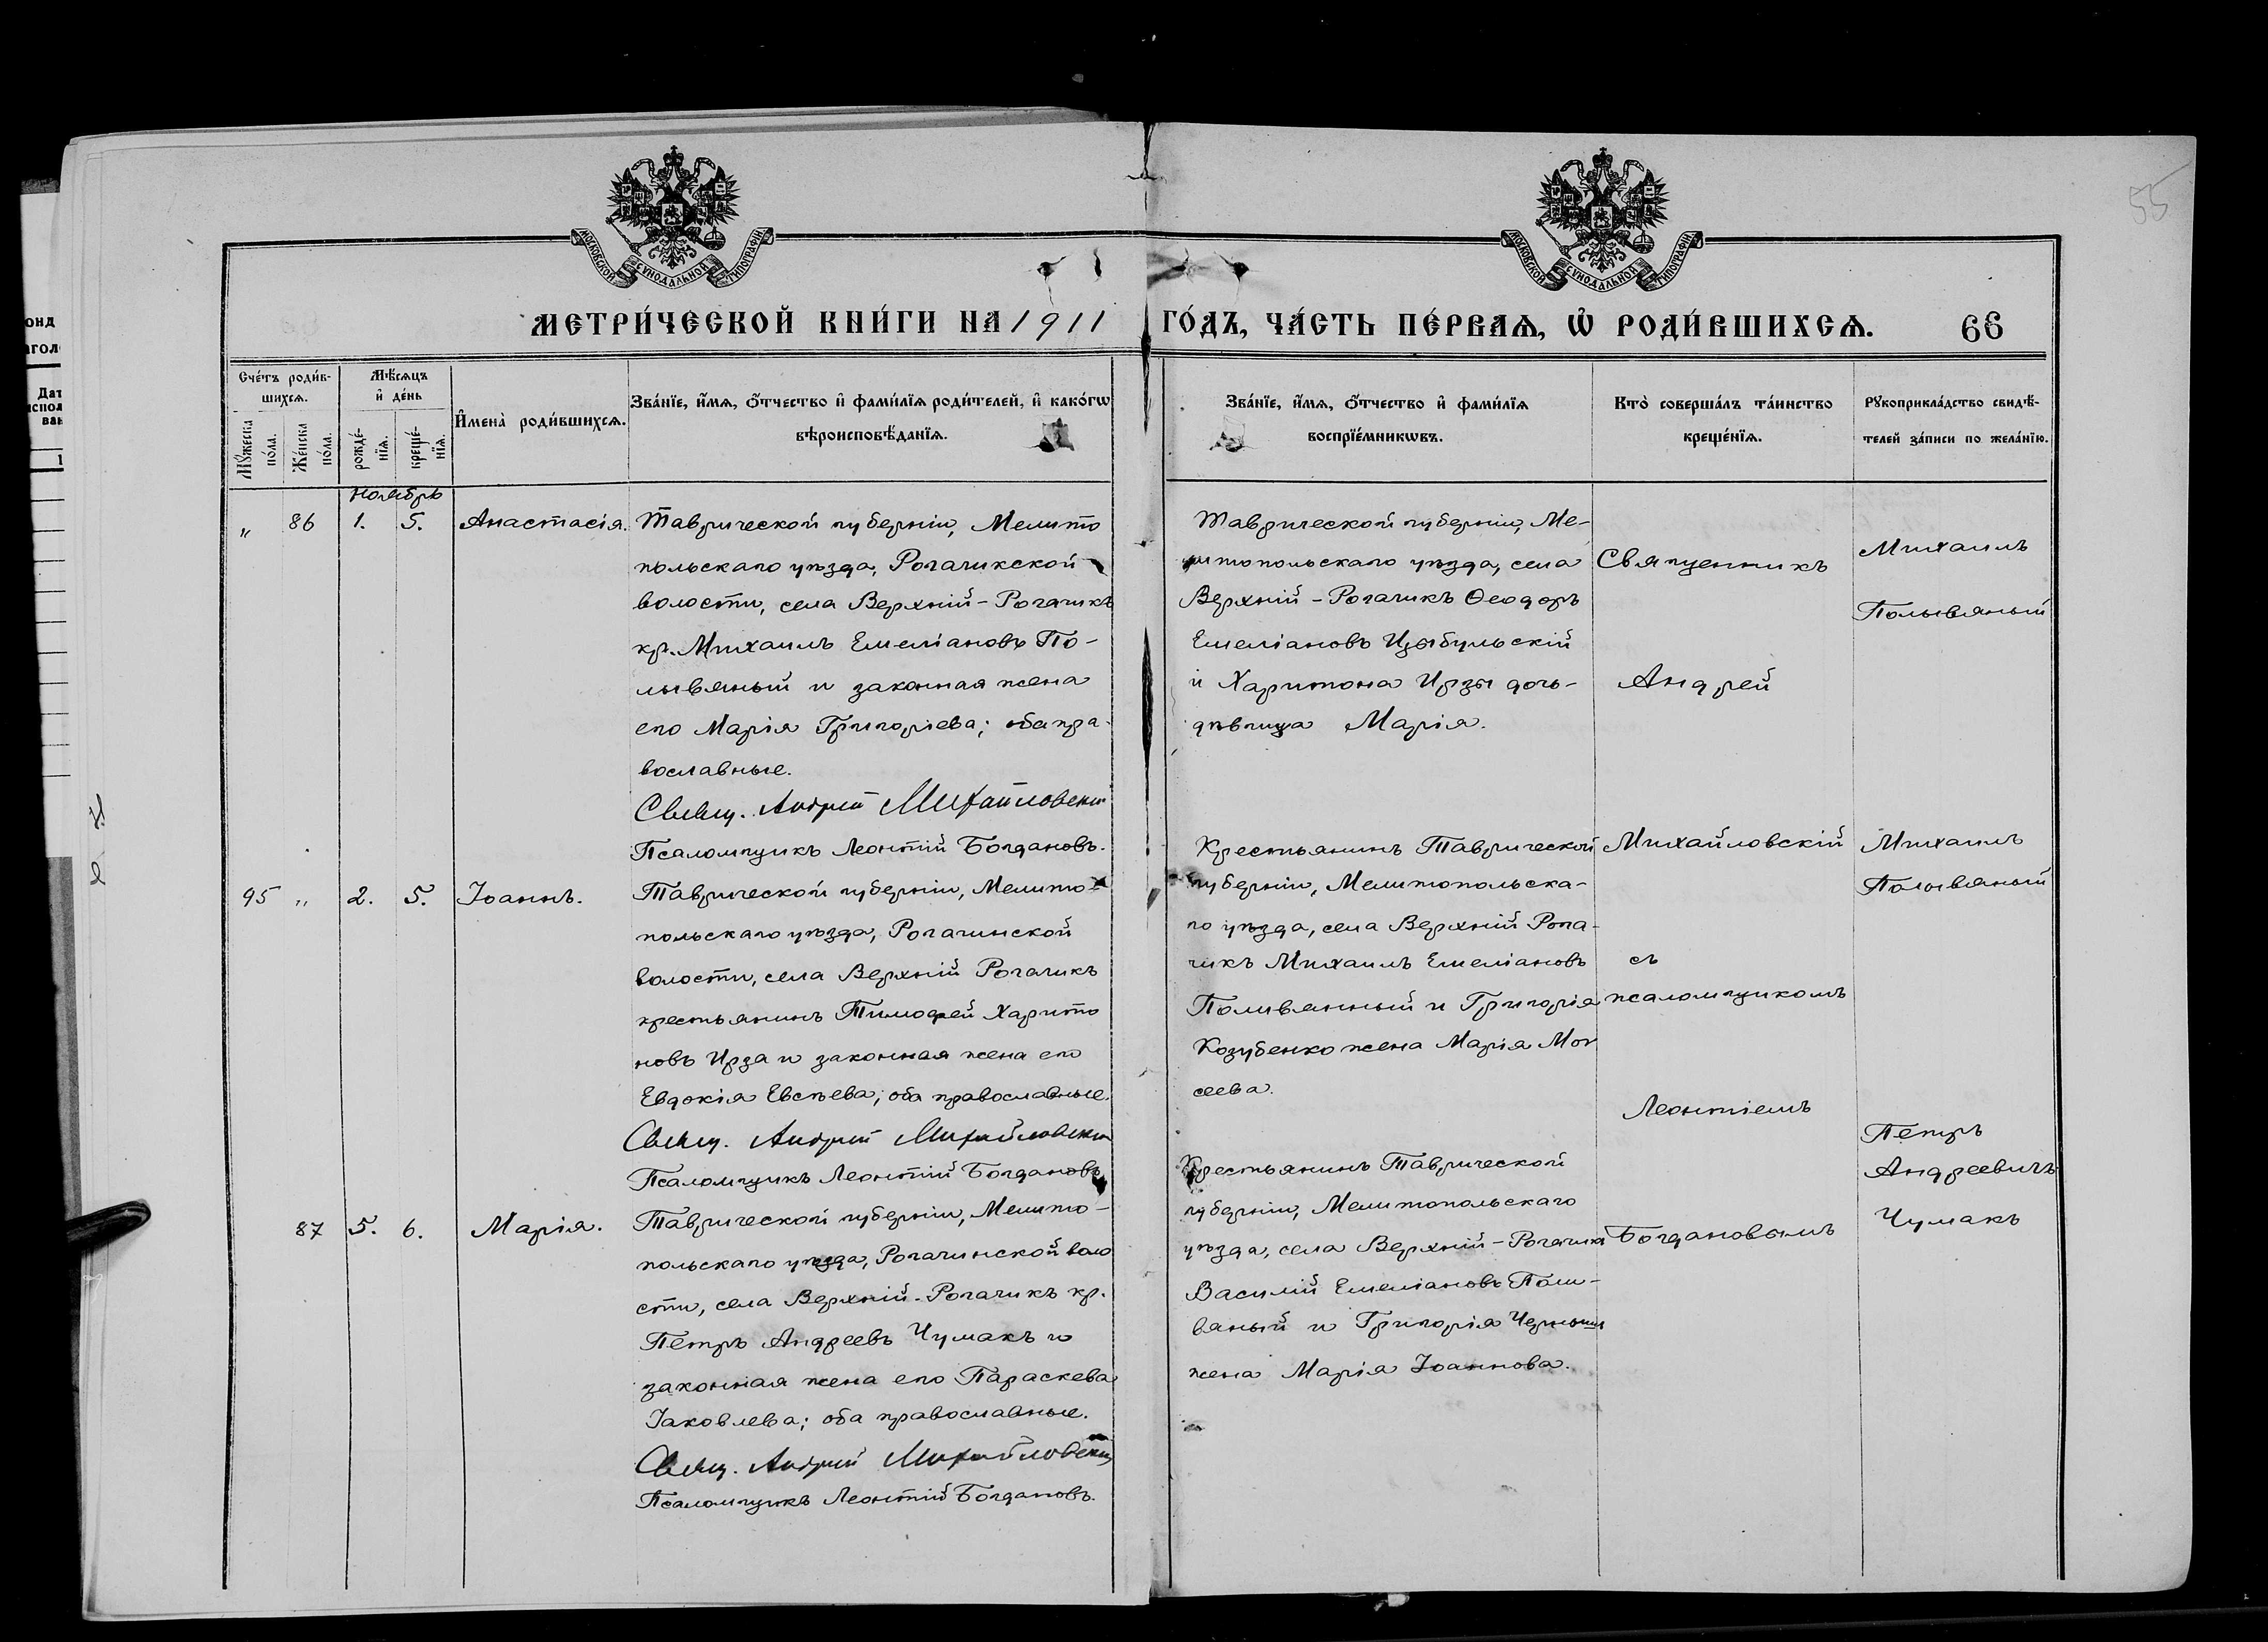 55
МОСКОВСКОЙ СѴНОДАЛЬНОЙ ТИПОГРАФІИ
МОСКОВСКОЙ СѴНОДАЛЬНОЙ ТИПОГРАФІИ
МЕТРИ́ЧЕСКОЙ КНИ́ГИ НА 1911 ГО́ДЪ, ЧА́СТЬ ПЕ́РВАѦ, Ѽ РОДИ́ВШИХСѦ. 66
Сче́тъ роди́в-
шихсѧ.
Мꙋ́жеска
по́ла.
Же́нска
по́ла.
Мѣ́сѧцъ
и҆ де́нь
рожде́-
нїѧ.
креще́-
нїѧ.
И҆мена̀ роди́вшихсѧ.
Зва́нїе, и҆́мѧ, ѻ҆́тчество и҆ фами́лїѧ роди́телей, и҆ како́гѡ
вѣроисповѣ́данїѧ.
Зва́нїе, и҆́мѧ, ѻ҆́тчество и҆ фами́лїѧ
воспрїе́мникѡвъ.
Кто̀ соверша́лъ та́инство
креще́нїѧ.
Рꙋкоприкла́дство свидѣ́-
телей за́писи по жела́нїю.
ноябрь
„ 86 1. 5. Анастасія.
Таврической губерніи, Мелито
польскаго уѣзда, Рогачикской
волости, села Верхній-Рогачикъ
кр. Михаилъ Емеліановъ По-
лывяный и законная жена
его Марія Григоріева; оба пра-
вославные.
Свящ. Андрей Михайловскій
Псаломщикъ Леонтій Богдановъ.
Таврической губерніи, Ме-
литопольскаго уѣзда, села
Верхній-Рогачикъ Ѳеодоръ
Емеліановъ Цыбульскій
и Харитона Ирзы дочь-
дѣвица Марія.
Священникъ
Андрей
Михайловскій
съ
псаломщикомъ
Леонтіемъ
Богдановымъ
Михаилъ
Полывяный
95 „ 2. 5. Іоаннъ.
Таврической губерніи, Мелито-
польскаго уѣзда, Рогачинской
волости, села Верхній Рогачикъ
крестьянинъ Тимофей Харито
новъ Ирза и законная жена его
Евдокія Евсѣева; оба православные.
Свящ. Андрей Михайловскій
Псаломщикъ Леонтій Богдановъ
Крестьянинъ Таврической
губерніи, Мелитопольска-
го уѣзда, села Верхній Рога-
чикъ Михаилъ Емеліановъ
Поливянный и Григорія
Козубенко жена Марія Мои
сеева.
Михаилъ
Полывяный
87 5. 6. Марія.
Таврической губерніи, Мелито-
польскаго уѣзда, Рогачинской воло
сти, села Верхній-Рогачикъ кр.
Петръ Андреевъ Чумакъ и
законная жена его Параскева
Іаковлева; оба православные.
Свящ. Андрей Михайловскій
Псаломщикъ Леонтій Богдановъ.
Крестьянинъ Таврической
губерніи, Мелитопольскаго
уѣзда, села Верхній-Рогачика
Василій Емеліановъ Поли-
вяный и Григорія
жена Марія Іоаннова.
Петръ
Андреевичъ
Чумакъ